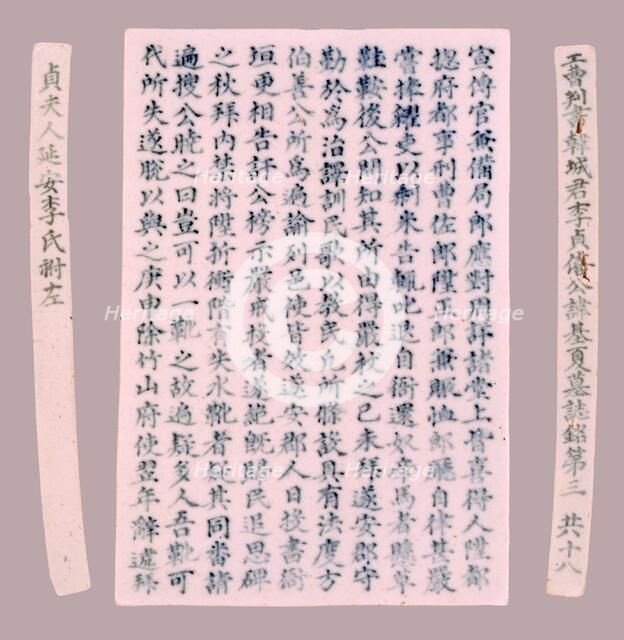 工曹判書韓城君李貞僖公諱基夏墓誌銘第三 共十八
宣傳官兼備局郎應對周詳諸堂上咸喜得人陞都
摠府都事刑曹佐郎陞正郎兼賑恤郎廳自律甚嚴
嘗捧糴吏以剩米告輒叱退自衙還奴牽馬者懸草
鞋鞍後公聞知其所由得嚴杖之己未拜遂安郡守
勤於爲治譯訓民歌以敎民凡所條設具有法度方
伯善公所爲遍諭列邑使皆效遂安郡人日投書衙
垣更相告訐公榜示嚴戒投者遂絶旣歸民追思碑
之秋拜內禁將陞折衝階有失水靴者其同番請
遍搜公曉之曰豈可以一靴之故遍疑多人吾靴可
代所失遂脫以與之庚申除竹山府使翌年辭遞拜
貞夫人延安李氏祔左
Heritage
Heritage
Heritage
Heritage
Heritage
Heritage
Heritage